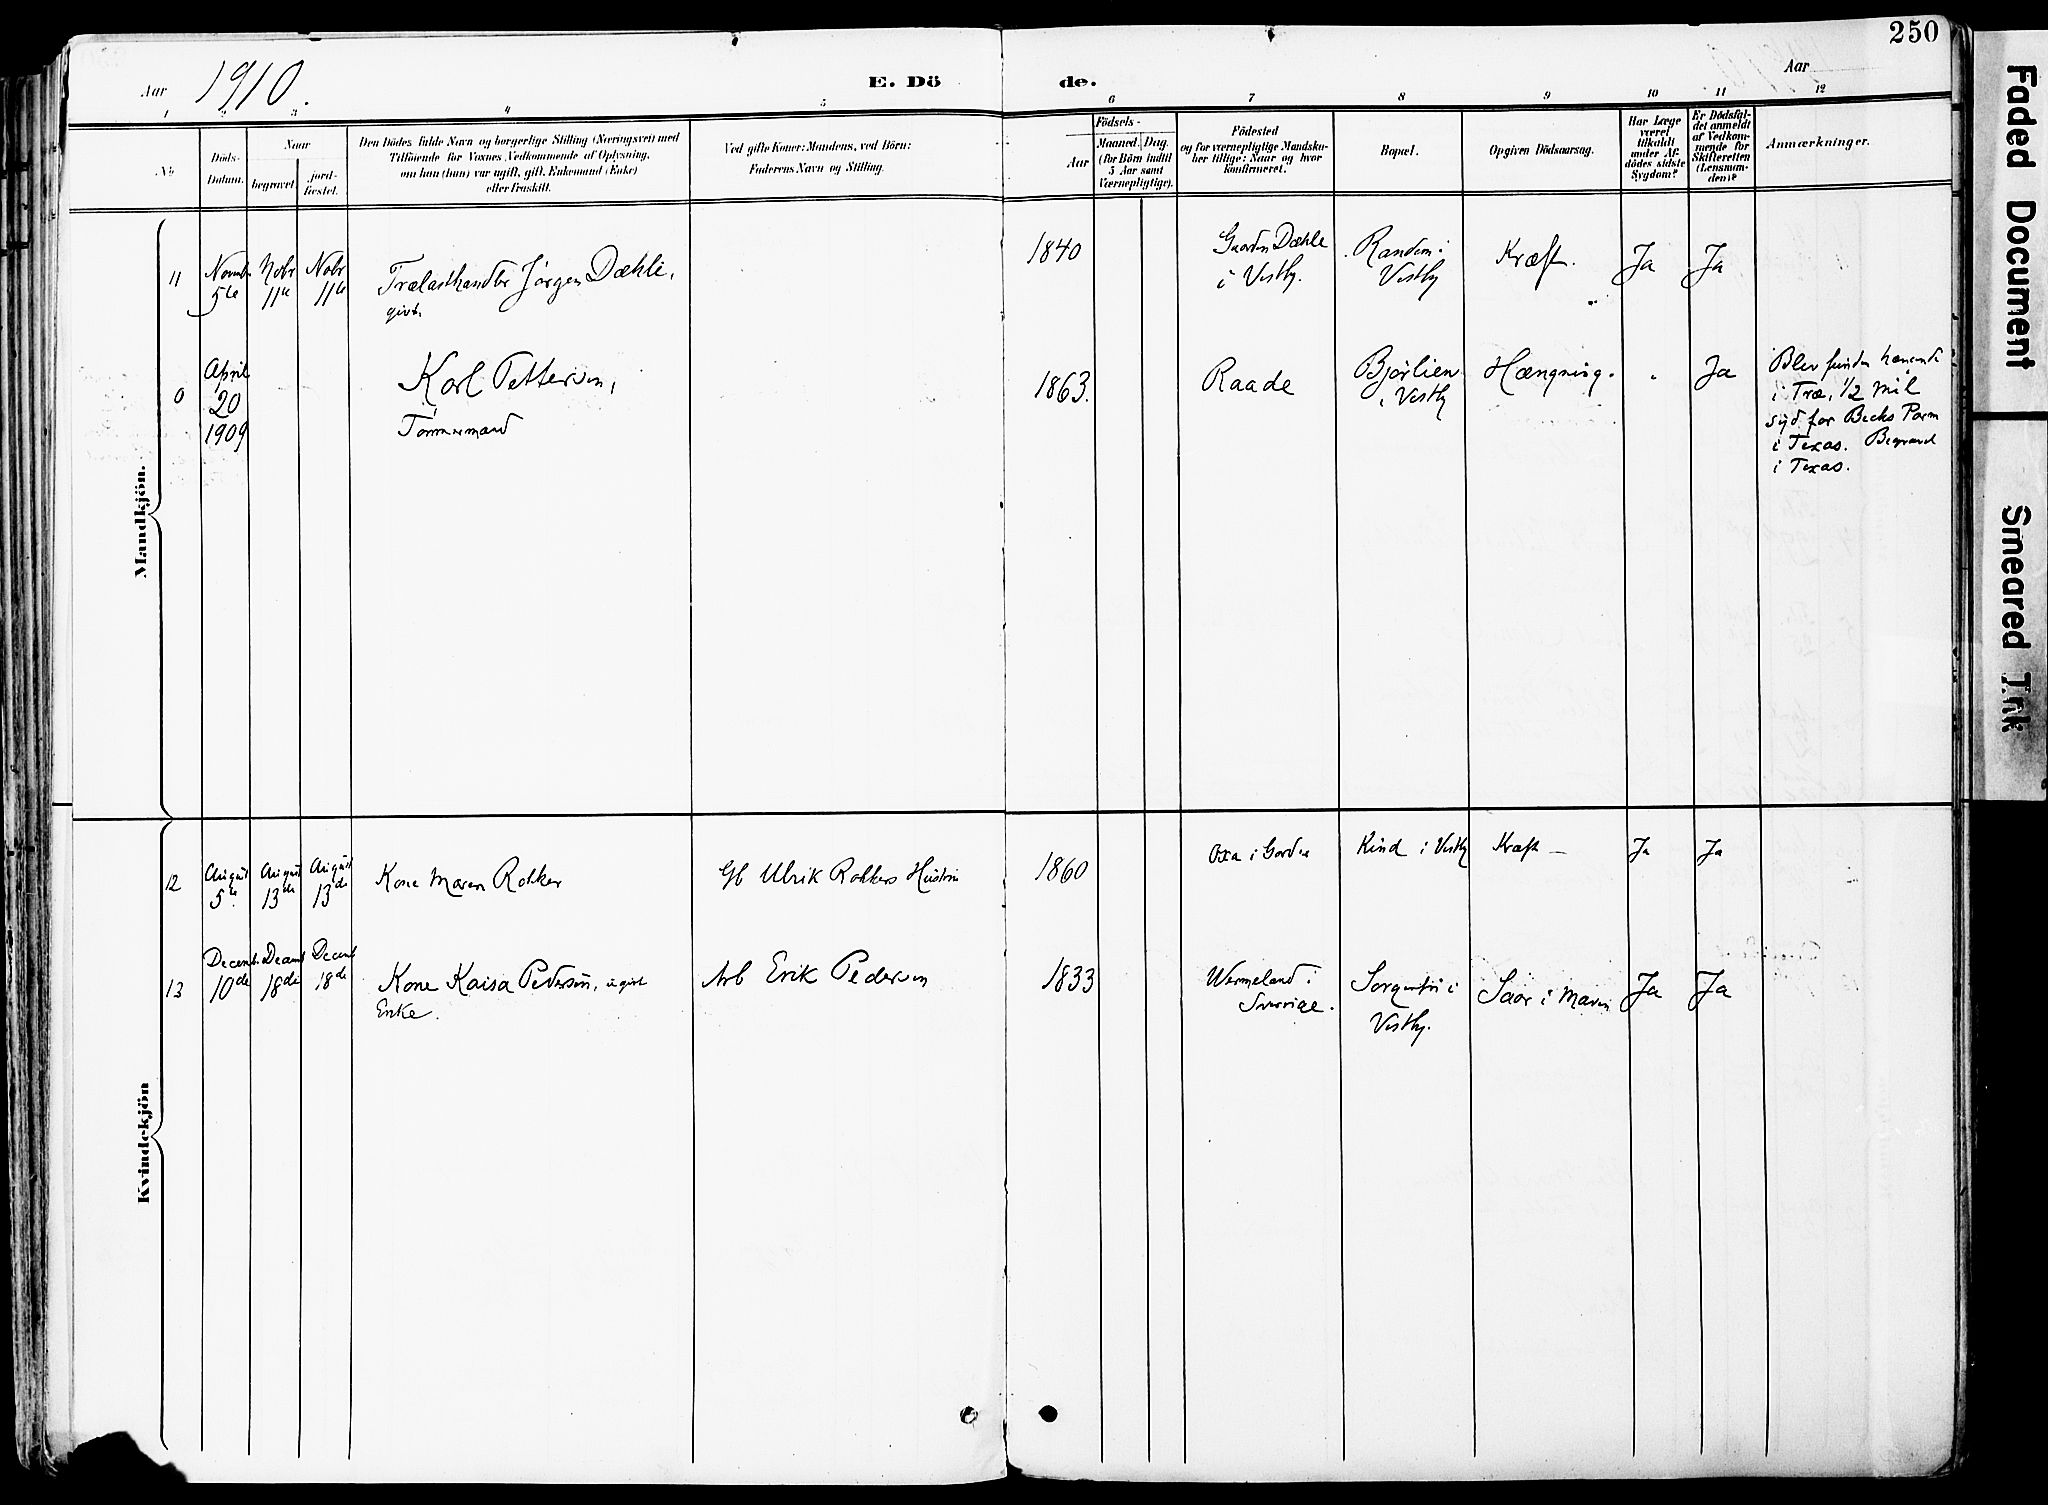 250
Aar 1910. E. Dö de. Aar
1 2 3 4 5 6 7 8 9 10 11 12
No
Döds-
Datum.
Naar
begravet.
jord-
fæstet.
Den Dödes fulde Navn og borgerlige Stilling (Næringsvei) med
Tilföiende for Voxnes Vedkommende af Oplysning,
om han (hun) var ugift, gift, Enkemand (Enke)
eller fraskilt.
Ved gifte Koner: Mandens, ved Börn:
Faderens Navn og Stilling.
Födsels-
Aar
Maaned. Dag.
(for Börn indtil
5 Aar samt
Værnepligtige).
Födested
og for værnepligtige Mandska-
ber tillige: Naar og hvor
konfirmeret.
Bopæl.
Opgiven Dödsaarsag.
Har Læge
været
tilkaldt
under Af-
dödes sidste
Sygdom?
Er Dödsfal-
det anmeldt
af Vedkom-
mende for
Skifteretten
(Lensman-
den)?
Anmærkninger.
Mandkjön.
11
Novmb
5te
Nobr
11te
Nobr
11te
Trælasthandler Jørgen Dæhli,
givt.
1840
Gaarden Dæhle
i Vestby.
Randem i
Vestby
Kræft.
Ja
Ja
0
April
20
1909
Karl Pettersen,
Tømmermand
1863.
Raade
Bjørlien
i Vestby
Hængning.
"
Ja
Blev funden hængende
i Træ, 1/2 Mil
syd for Becks Farm
i Texas. Begravet
i Texas.
Kvindekjön
12
August
5te
August
13de
August
13de
Kone Maren Rokker
Gb Ulrik Rokkers Hustru
1860
Kind i Vestby
Kræft —
Ja
Ja
13
Decemb.
10de
Decemb
18de
Decemb
18de
Kone Kaisa Pedersen, ugivt
Enke.
Arb Erik Pedersen
1833
Wermeland i
Sverrige.
i
Vestby.
Saar i Maven
Ja
Ja
Faded Document
Smeared Ink